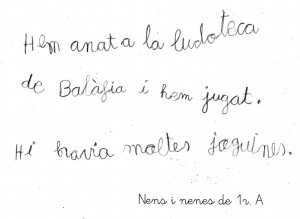 Hem anat a la ludoteca
de Balàfia i hem jugat.
Hi havia moltes joguines.
Nens i nenes de 1r. A